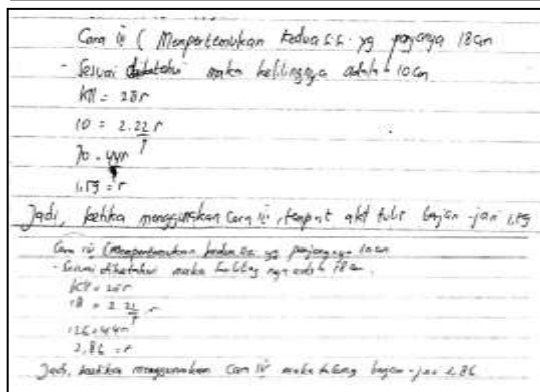 Cara iii ( Mempertemukan kedua s.s. yg panjangnya 18 cm
- Sesuai diketahui maka kelilingnya adalah 10 cm
Kll = 2πr
10 = 2.22/7 r
70 = 44r
1,59 = r
Jadi, ketika menggunakan Cara iii, tempat alat tulis berjari-jari 1,59
Cara iv (Mempertemukan kedua sisi yg panjangnya 10 cm
- Sesuai diketahui maka keliling nya adalah 18 cm.
Kll = 2πr
18 = 2 22/7 r
126 = 44r
2,86 = r
Jadi, ketika menggunakan Cara iv maka tabung berjari-jari 2,86